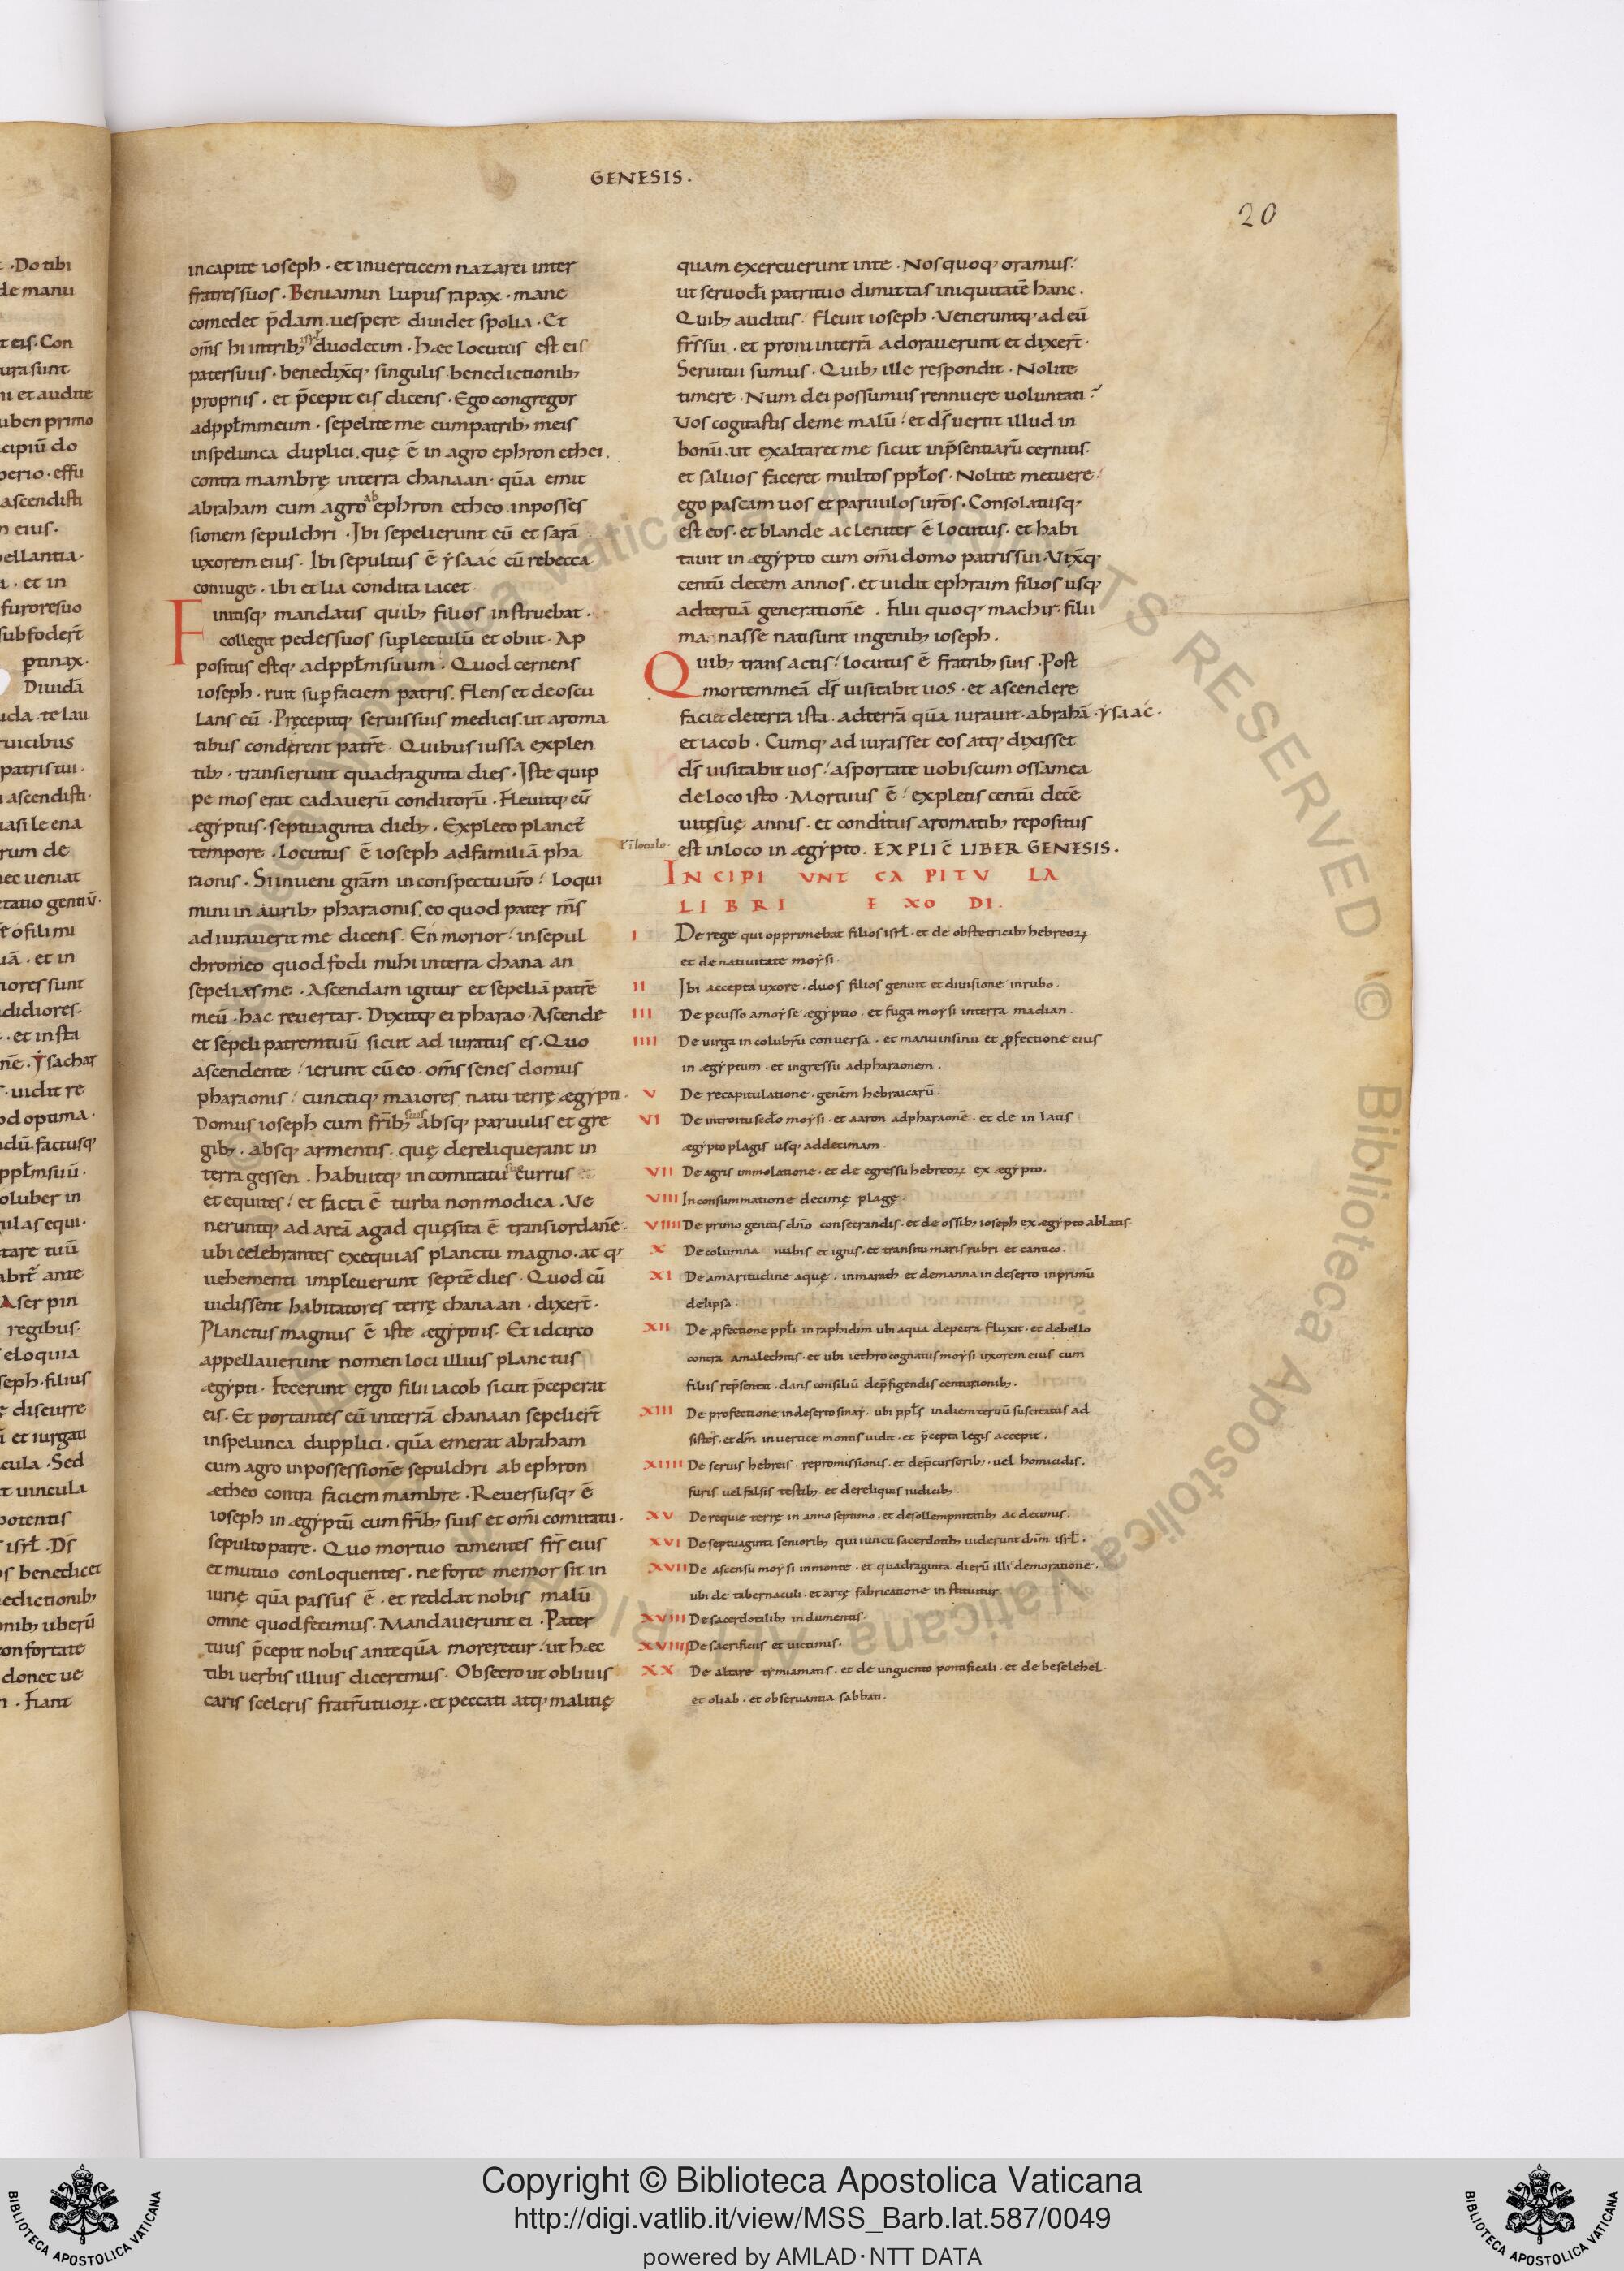 GENESIS.
20
in capite ioseph · et in uerticem nazarei inter
fratres suos · Beniamin lupus rapax · mane
comedet p̄dam. uespere diuidet spolia · Et
om̄s hi intribꝫ isrł duodecim · Hæc locutus est eis
pater suus · benedix̄qꝫ singulis benedictionibꝫ
propriis · et p̄cepit eis dicens · Ego congregor
ad ppłm meum · sepelite me cum patribꝫ meis
in spelunca duplici. quę ē in agro ephron ethei.
contra mambrę in terra chanaan · quā emit
abraham cum agro ab ephron etheo. in posses
sionem sepulchri · Ibi sepelierunt eū et sarā
uxorem eius. Ibi sepultus ē ẏsaac cū rebecca
coniuge · ibi et lia condita iacet
Finitisqꝫ mandatis quibꝫ filios instruebat ·
collegit pedes suos sup̱ lectulū et obiit · Ap
positus estqꝫ ad ppłm suum · Quod cernens
ioseph · ruit sup̱ faciem patris. flens et deoscu
lans eū · Pręcepitqꝫ seruis suis medicis. ut aroma
tibus condęrent patrē · Quibus iussa explen
tibꝫ · transierunt quadraginta dies · Iste quip
pe mos erat cadauerū conditorū · Fleuitqꝫ eū
ægẏptus · septuaginta diebꝫ · Expleto planct̄
tempore · locutus ē ioseph ad familiā pha
raonis · Si inueni grām in conspectu ur̄o / loqui
mini in auribꝫ pharaonis. eo quod pater m̄s
adiurauerit me dicens · En morior / in sepul
chro meo quod fodi mihi in terra chanaan
sepelias me · Ascendam igitur et sepeliā patrē
meū · hac reuertar · Dixitqꝫ ei pharao · Ascende
et sepeli patrem tuū sicut adiuratus es · Quo
ascendente / ierunt cū eo · om̄s senes domus
pharaonis / cunctiqꝫ maiores natu terrę ægẏpti ·
Domus ioseph cum fr̄ibꝫ suis absqꝫ paruulis et gre
gibꝫ · absqꝫ armentis · quę dereliquerant in
terra gessen · habuitqꝫ in comitatu suo currus
et equites / et facta ē turba non modica · Ve
neruntqꝫ ad areā agad quę sita ē trans iordanē ·
ubi celebrantes exequias planctu magno · atqꝫ
uehementi impleuerunt septē dies · Quod cū
uidissent habitatores terrę chanaan · dixer̄t ·
Planctus magnus ē iste ægẏptiis · Et idcirco
appellauerunt nomen loci illius planctus
ægẏpti · Fecerunt ergo filii iacob sicut p̄ceperat
eis · Et portantes eū in terrā chanaan sepelier̄t
in spelunca dupplici · quā emerat abraham
cum agro in possessionē sepulchri ab ephron
ætheo contra faciem mambre · Reuersusqꝫ ē
ioseph in ægẏptū cum fr̄ibꝫ suis et om̄i comitatu ·
sepulto patre · Quo mortuo timentes fr̄s eius
et mutuo conloquentes · ne forte memor sit in
iurię quā passus ē · et reddat nobis malū
omne quod fecimus · Mandauerunt ei · Pater
tuus p̄cepit nobis antequā moreretur / ut hæc
tibi uerbis illius diceremus · Obsecro ut obliuis
caris sceleris fratrū tuoꝝ · et peccati atqꝫ malitię
quam exercuerunt in te · Nos quoqꝫ oramus /
ut seruo dī patri tuo dimittas iniquitatē hanc ·
Quibꝫ auditis / fleuit ioseph · Veneruntqꝫ ad eū
fr̄s sui · et proni in terrā adorauerunt et dixer̄t ·
Serui tui sumus · Quibꝫ ille respondit · Nolite
timere · Num dei possumus rennuere uoluntati?
Uos cogitastis de me malū / et d̄s uertit illud in
bonū. ut exaltaret me sicut in p̄sentiarū cernitis ·
et saluos faceret multos ppłos · Nolite metuere /
ego pascam uos et paruulos ur̄os · Consolatusqꝫ
est eos · et blande ac leniter ē locutus · et habi
tauit in ægẏpto cum om̄i domo patris sui · Vix̄qꝫ
centū decem annos · et uidit ephraim filios usqꝫ
ad tertiā generationē · Filii quoqꝫ machir · filii
manasse nati sunt in genibꝫ ioseph ·
Quibꝫ transactis / locutus ē fratribꝫ suis · Post
mortem meā d̄s uisitabit uos · et ascendere
faciet de terra ista · ad terrā quā iurauit · abrahā · ẏsaac ·
et iacob · Cumqꝫ adiurasset eos atqꝫ dixisset
d̄s uisitabit uos / asportate uobiscum ossa mea
de loco isto · Mortuus ē / expletis centū decē
uitę suę annis · et conditus aromatibꝫ repositus
ł ī loculo · est in loco in ægẏpto. EXPLIC̄ LIBER GENESIS.
INCIPIUNT CAPITULA
LIBRI EXODI.
I De rege qui opprimebat filios isrł · et de obstetricibꝫ hebreoꝝ
et de natiuitate moẏsi ·
II Ibi accepta uxore · duos filios genuit et diuisione in rubo ·
III De percusso a moẏse ægẏptio · et fuga moẏsi in terra madian ·
IIII De uirga in colubrū conuersa · et manu in sinu et ꝓfectione eius
in ægẏptum · et ingressu ad pharaonem ·
V De recapitulatione · genēm hebraicarū ·
VI De introitu scd̄o moẏsi · et aaron ad pharaonē · et de inlatis
ægẏpto plagis usqꝫ ad decimam
VII De agris immolatione · et de egressu hebreoꝝ ex ægẏpto ·
VIII In consummatione decimę plagę ·
VIIII De primogenitis dn̄o consecrandis · et de ossibꝫ ioseph ex ægẏpto ablatis
X De columna nubis et ignis · et transitu maris rubri et cantico ·
XI De amaritudine aquę · in marath et de manna in deserto in primū
delipsa ·
XII De ꝓfectione ppłi in raphidim ubi aqua de petra fluxit · et de bello
contra amalechitas · et ubi iethro cognatus moẏsi uxorem eius cum
filiis rep̄sentat · dans consiliū de p̄figendis centurionibꝫ ·
XIII De profectione in deserto sinaẏ · ubi ppłs in diem tertiū suscitatus ad
sistet̄ · et dm̄ in uertice montis uidit · et p̄cepta legis accepit ·
XIIII De seruis hebreis · repromissionis · et de p̄cursoribꝫ · uel homicidis ·
furis uel falsis testibꝫ et de reliquis iudicibꝫ ·
XV De requie terrę in anno septimo · et de sollempnitatibꝫ ac decimis ·
XVI De septuaginta senioribꝫ qui iuncti sacerdotibꝫ uiderunt dn̄m isrł ·
XVII De ascensu moẏsi in monte · et quadraginta dierū illi demoratione ·
ubi de tabernaculi · et arcę fabricatione instituitur
XVIII De sacerdotalibꝫ indumentis ·
XVIIII De sacrificiis et uictimis ·
XX De altare tẏmiamatis · et de unguento pontificali · et de beselehel ·
et oliab · et obseruantia sabbati ·
Copyright © Biblioteca Apostolica Vaticana
http://digi.vatlib.it/view/MSS_Barb.lat.587/0049
powered by AMLAD·NTT DATA
BIBLIOTECA APOSTOLICA VATICANA
BIBLIOTECA APOSTOLICA VATICANA